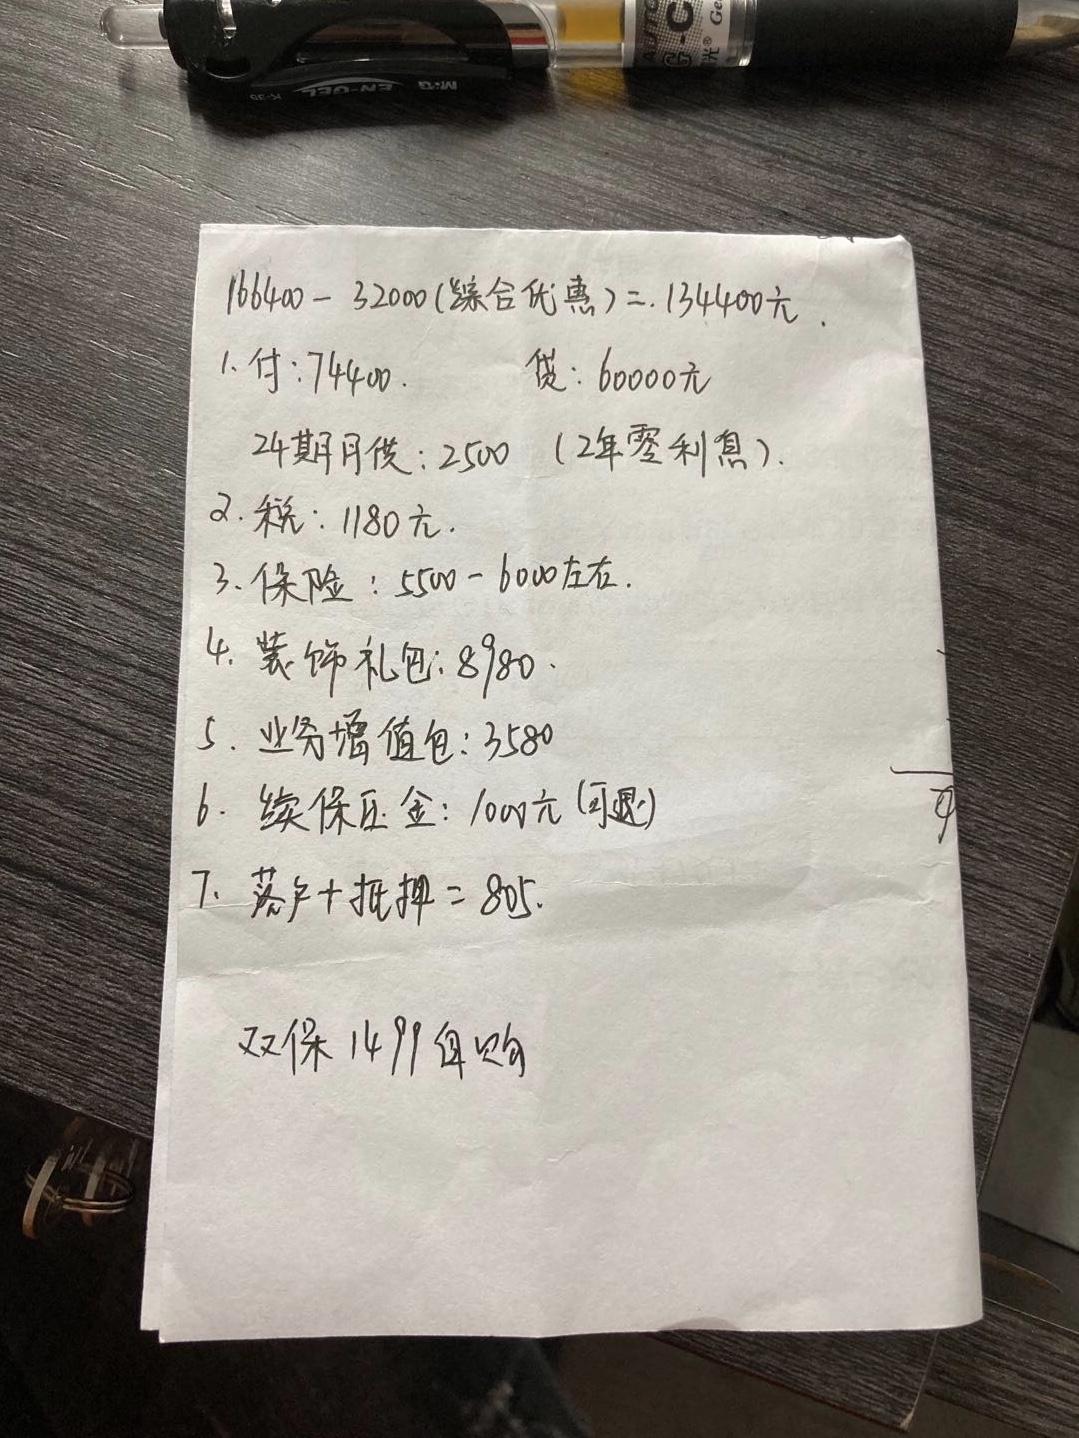 AUTO
G-C
Ge
M&G
EN-GEL
K-35
166400-32000(综合优惠)=.134400元.
1.付:74400.　贷:60000元
24期月供:2500 (2年零利息).
2.税:1180元.
3.保险:5500-6000左右.
4.装饰礼包:8980.
5.业务增值包:3580
6.续保压金:1000元(可退)
7.落户+抵押=805.
双保1499自购